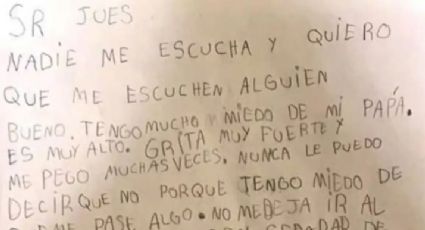 SR JUES
NADIE ME ESCUCHA Y QUIERO
QUE ME ESCUCHEN ALGUIEN
BUENO. TENGO MUCHO MIEDO DE MI PAPÁ.
ES MUY ALTO. GRITA MUY FUERTE Y
ME PEGO MUCHAS VECES. NUNCA LE PUEDO
DECIR QUE NO PORQUE TENGO MIEDO DE
ME PASE ALGO. NO MEDEJA IR AL
DE